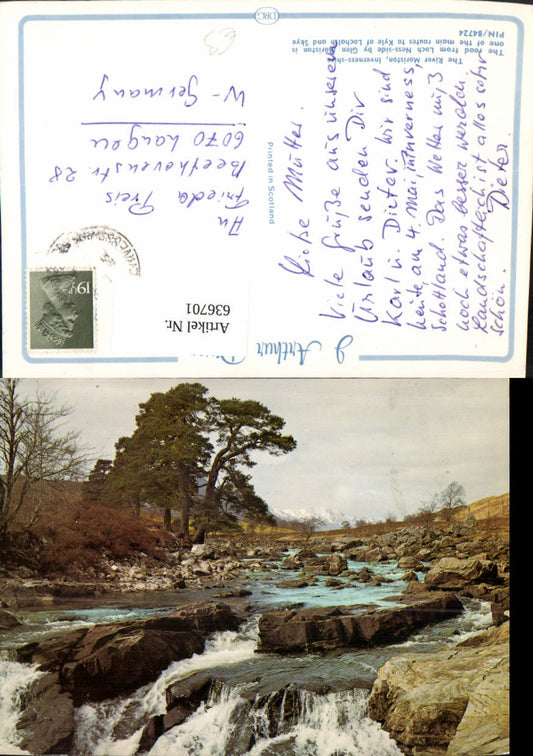 The River Moriston, Inverness-shire
The road from Loch Ness-side by Glen Moriston is
one of the main routes to Kyle of Lochalsh and Skye
PIN/84724
DRG
Liebe Mutter.
Viele Grüße aus unserem
Urlaub senden Dir
Karl u. Dieter. Wir sind
heute am 4. Mai, in Inverness,
Schottland. Das Wetter muß
noch etwas besser werden,
Landschaftlich ist alles sehr
schön.
Dieter.
Printed in Scotland
An
Frieda Preis
Beethovenstr 28
6070 Langen
W-Germany
19½
Artikel Nr.
636701
J Arthur